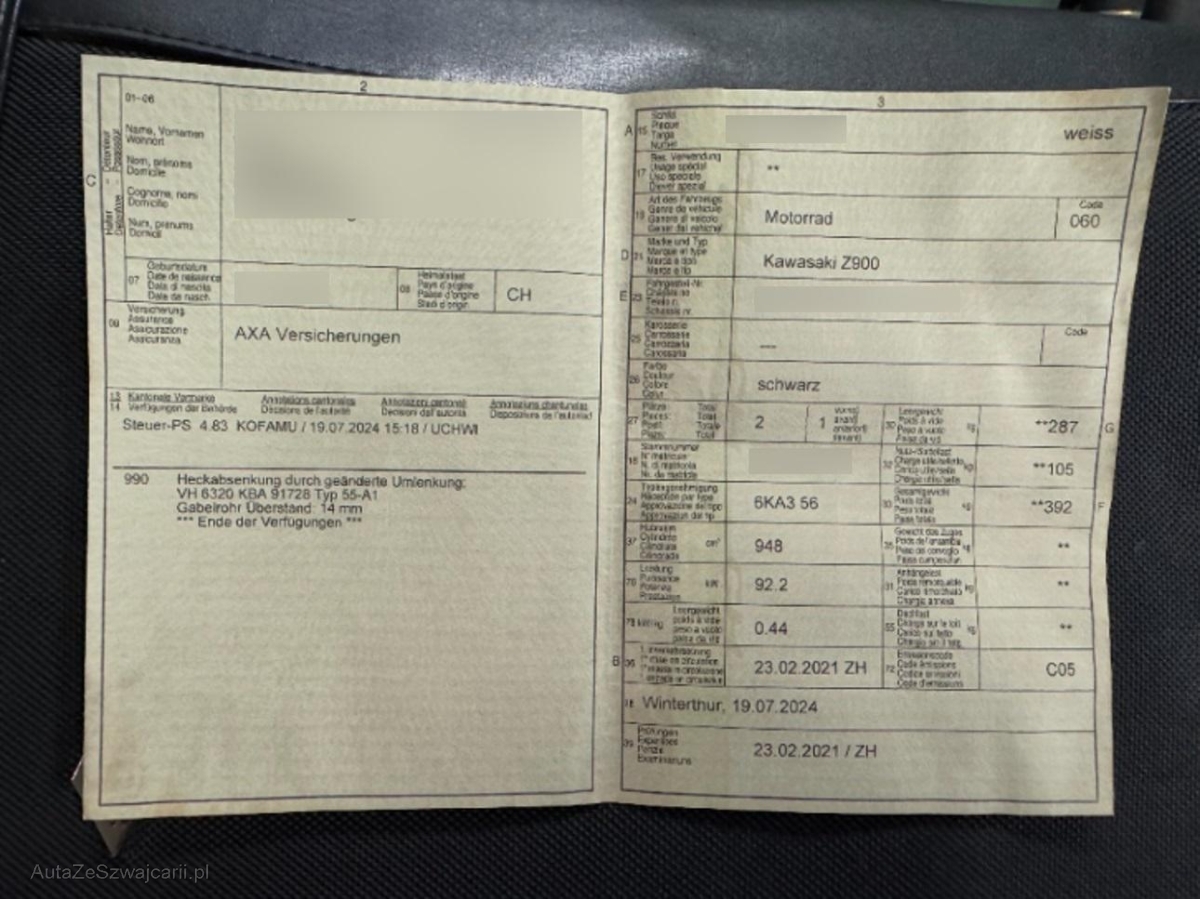 2
01-06
Name, Vornamen
Wohnort
Nom, prénoms
Domicile
Cognome, nomi
Domicilio
Num, prenums
Domicil
C
07
Geburtsdatum
Date de naissance
Data di nascita
Data da nasch.
08
Heimatstaat
Pays d'origine
Paese d'origine
Stadi d'origin
CH
09
Versicherung
Assurance
Assicurazione
Assicuranza
AXA Versicherungen
13 Kantonale Vermerke
Annotations cantonales
Annotazioni cantonali
Annotaziuns chantunalas
14 Verfügungen der Behörde
Décisions de l'autorité
Decisioni dell'autorità
Disposiziuns da l'autoritad
Steuer-PS 4.83 KOFAMU / 19.07.2024 15:18 / UCHWI
990 Heckabsenkung durch geänderte Umlenkung:
VH 6320 KBA 91728 Typ 55-A1
Gabelrohr Überstand: 14 mm
*** Ende der Verfügungen ***
3
A 15
Schild
Plaque
Targa
Numer
weiss
17
Bes. Verwendung
Usage spécial
Uso speciale
Diever spezial
**
19
Art des Fahrzeugs
Genre de véhicule
Genere di veicolo
Gener dal vehichel
Motorrad
Code
060
D 21
Marke und Typ
Marque et type
Marca e tipo
Marca e tip
Kawasaki Z900
E 23
Fahrgestell-Nr.
Châssis no
Telaio n.
Schassis nr.
25
Karosserie
Carrosserie
Carrozzeria
Carossaria
---
Code
26
Farbe
Couleur
Colore
Colur
schwarz
27
Total
Total
Totale
Total
2
1
30
Leergewicht
Poids à vide
Peso a vuoto
Paisa da vid
kg
**287
G
18
Stammnummer
N° matricule
N. di matricola
Nr. da matricla
32
Nutz-/Sattellast
Charge utile/sellette
kg
**105
24
Typengenehmigung
Réception par type
Approvazione del tipo
Approvaziun dal tip
6KA3 56
33
Gesamtgewicht
Poids total
Peso totale
Paisa totala
kg
**392
F
37
Hubraum
Cylindrée
Cilindrata
Cilindrada
cm³
948
35
Gewicht des Zuges
Poids de l'ensemble
Peso del convoglio
kg
**
76
Leistung
Puissance
Potenza
Prestaziun
kW
92.2
31
Anhängelast
Poids remorquable
Carico rimorchiato
Chargia annexa
kg
**
78 kW/kg
Leergewicht
poids à vide
peso a vuoto
paisa da vid
0.44
55
Dachlast
Charge sur le toit
Carico sul tetto
Chargia sin il tetg
kg
**
B 36
1. Inverkehrsetzung
23.02.2021 ZH
72
Emissionscode
Code émissions
Codice emissioni
Code d'emissiuns
C05
38 Winterthur, 19.07.2024
39
Prüfungen
Expertises
Perizie
Examinaziuns
23.02.2021 / ZH
AutaZeSzwajcarii.pl